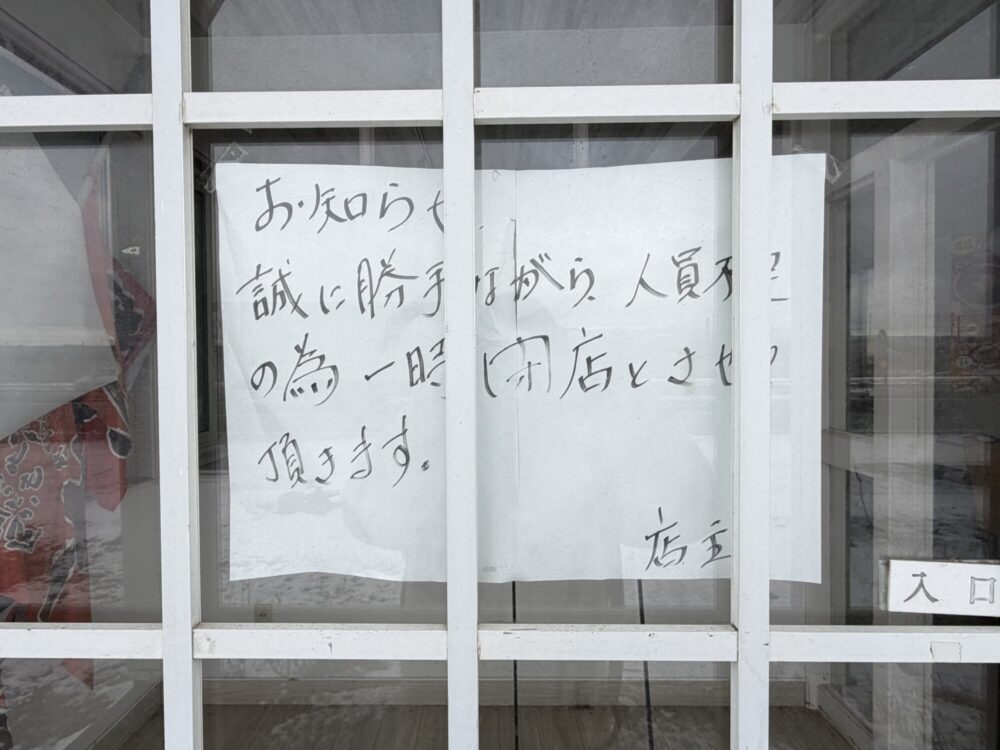 お知らせ
誠に勝手ながら、人員不足
の為一時閉店とさせて
頂きます。
店主
入口